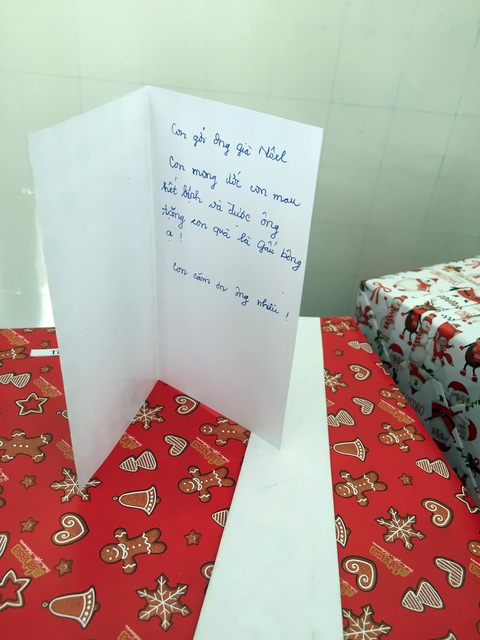 Con gởi ông già Nôel
Con mong ước con mau
hết bệnh và được ông
tặng con quà là Gấu bông
ạ !
Con cám ơn ông nhiều !